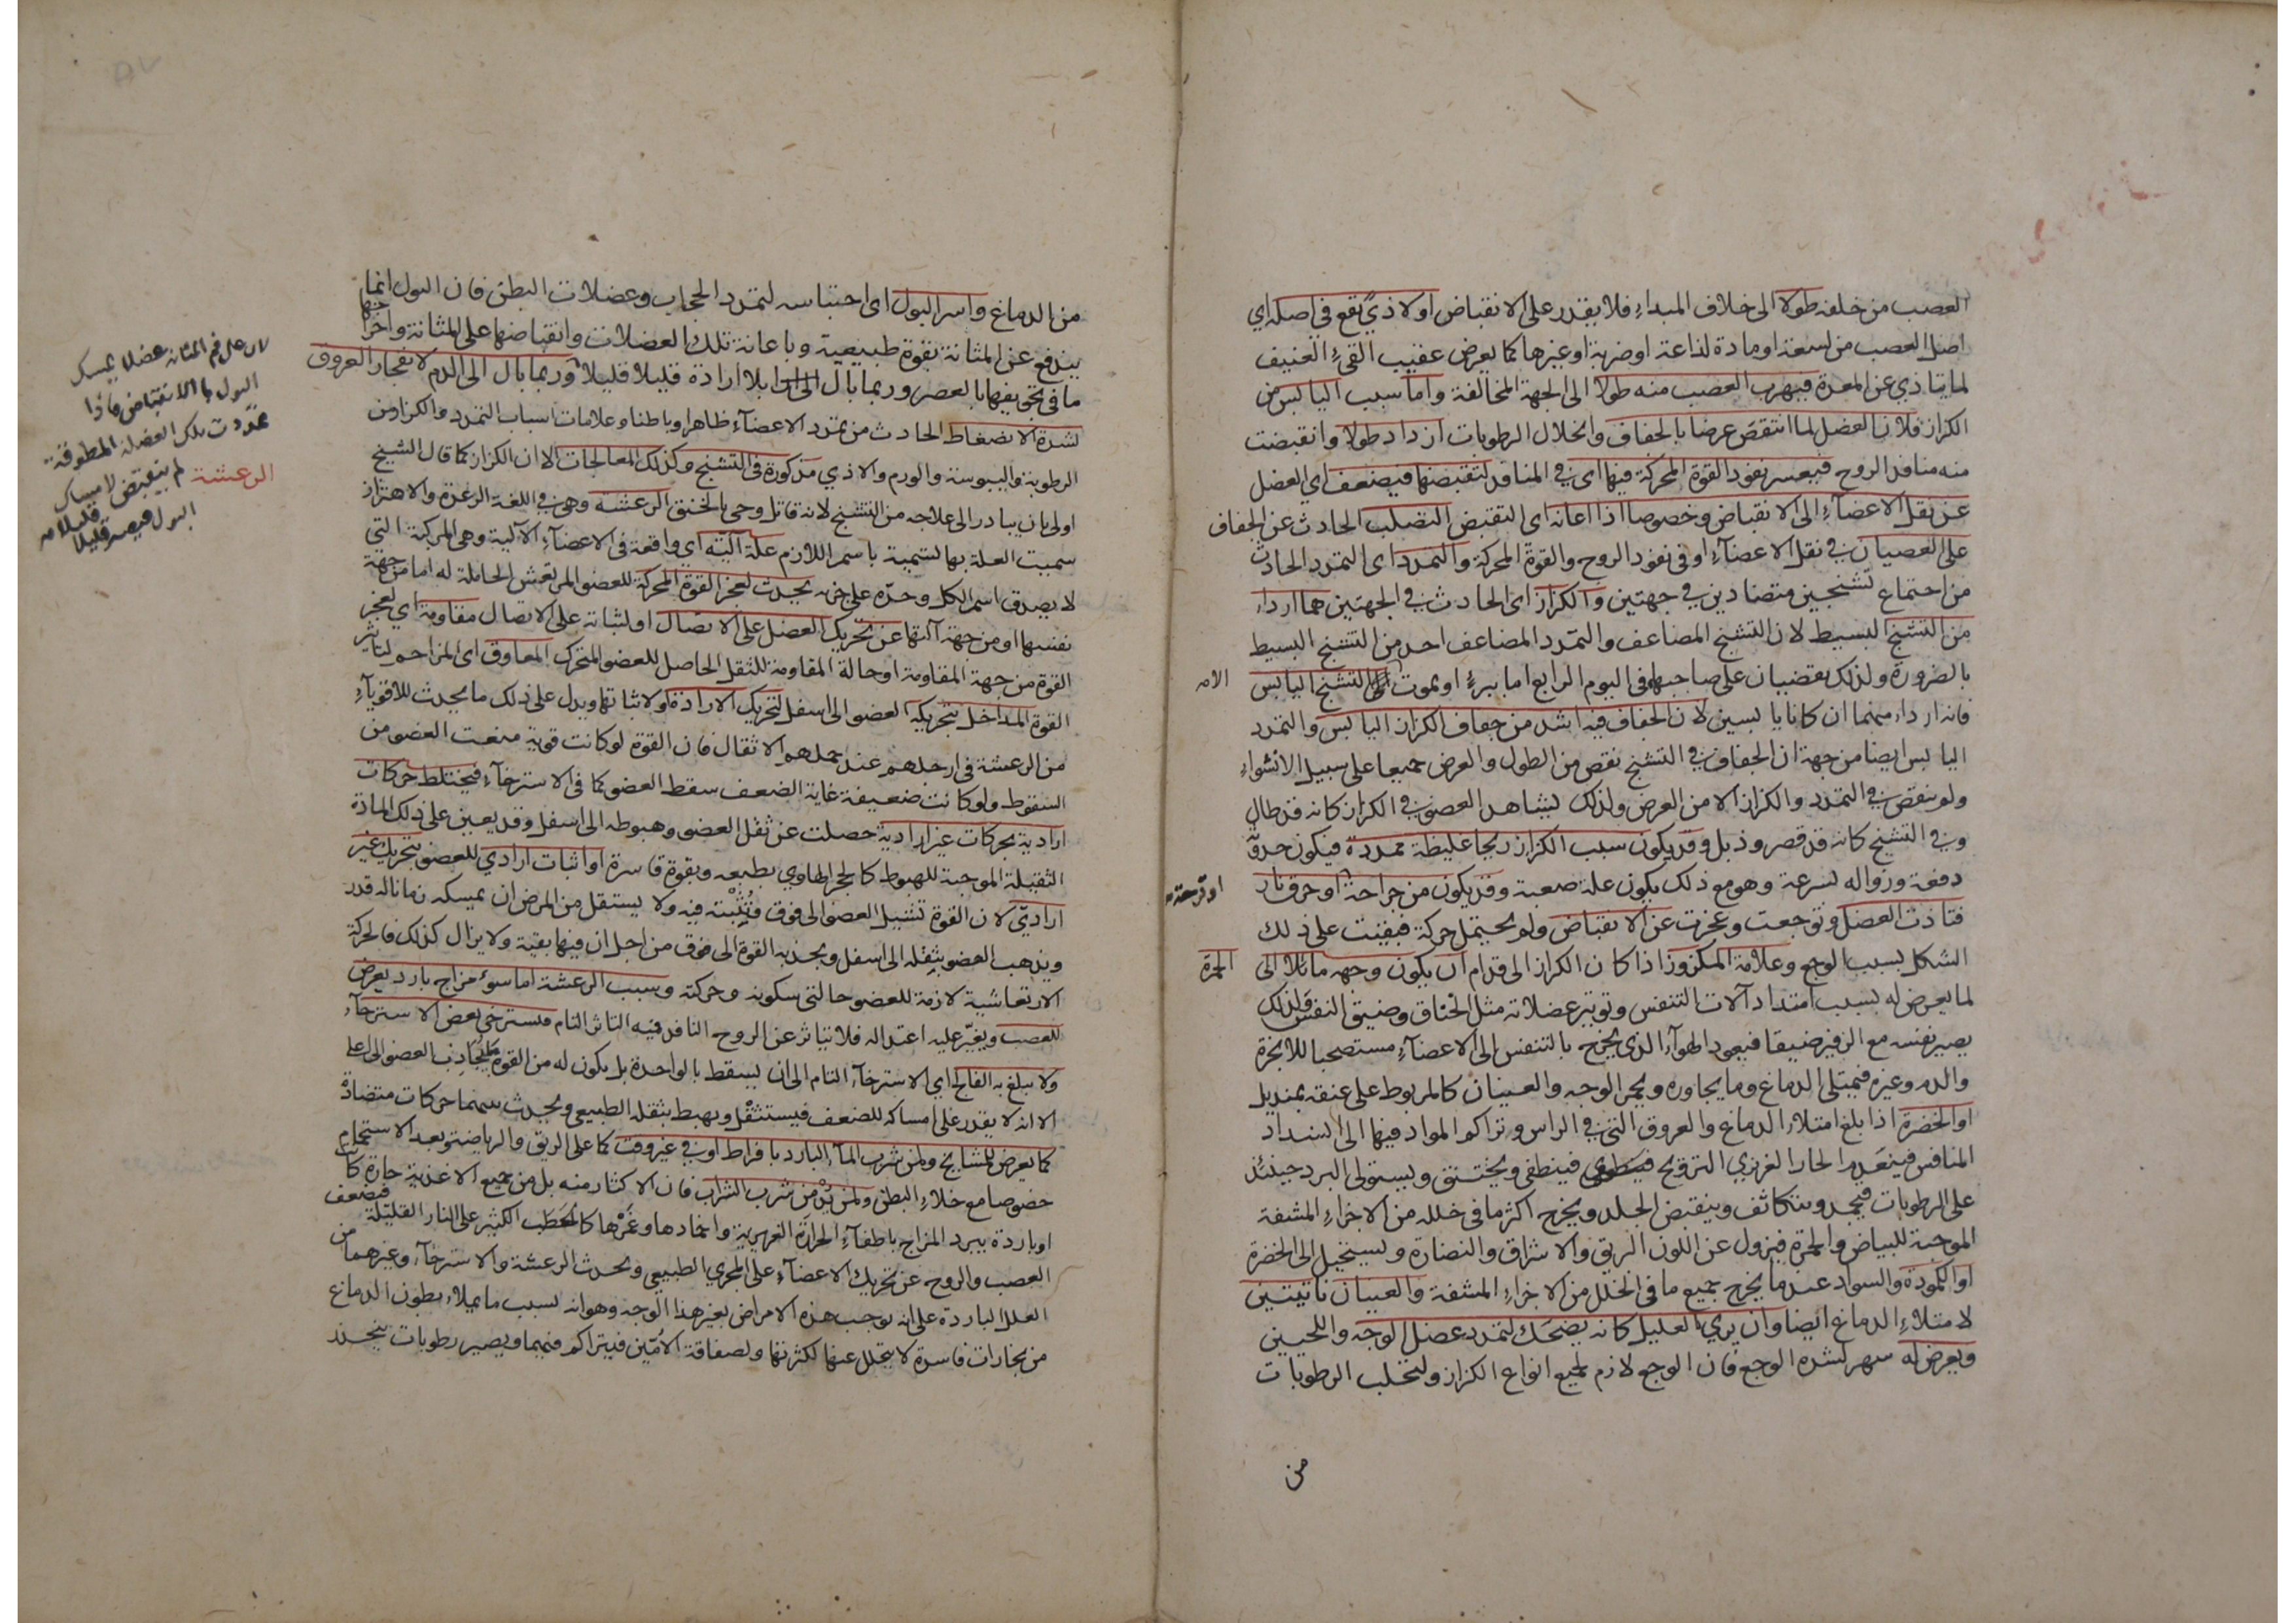 العصب من خلفه طولا الى خلاف المبداء فلا يقدر على الانقباض او لاذيً يقع في اصله اي
اصل العصب من لسعة او مادة لذاعة او ضربة او غيرها كما يعرض عقيب القيء العنيف
لما يتاذي عن المعدة فيهرب العصب منه طولا الى الجهة المخالفة واما سبب اليابس من
الكزاز فلان العضل لما انتقص عرضا بالجفاف وانحلال الرطوبات ازداد طولا وانقبضت
منه منافذ الروح فيعسر نفوذ القوة المحركة فيها اي في المنافذ لتقبضها فيضعف اي العضل
عن نقل الاعضاء الى الانقباض وخصوصا اذا اعانه اي التقبض التصلب الحادث عن الجفاف
على العصيان في نقل الاعضاء او في نفوذ الروح والقوة المحركة والتمدد اي التمدد الحادث
من اجتماع تشنجين متضادين في جهتين والكزاز اي الحادث في الجهتين هما اردا
من التشنج البسيط لان التشنج المضاعف والتمدد المضاعف احد من التشنج البسيط
بالضرورة ولذلك يقضيان على صاحبهما في اليوم الرابع اما ببرء او بموت التشنج اليابس
الا من
فانه اردا منهما ان كانا يابسين لان الجفاف فيه اشد من جفاف الكزاز اليابس والتمدد
اليابس ايضا من جهة ان الجفاف في التشنج نقص من الطول والعرض جميعا على سبيل الانشواء
ولم ينقص في التمدد والكزاز الا من العرض ولذلك يشاهد العضو في الكزاز كانه قد طال
وفي التشنج كانه قد قصر وذبل وقد يكون سبب الكزاز ريحا غليظة ممددة فيكون حدوثه
دفعة وزواله بسرعة وهو مع ذلك يكون علة صعبة وقد يكون من جراحة او حرق نار
او قرحة
فتاذت العضل وتوجعت وعجزت عن الانقباض ولم يحتمل حركة فبقيت على ذلك
الشكل بسبب الوجع وعلامة المكزوز اذا كان الكزاز الى قدام ان يكون وجهه مائلا الى
الحمرة
لما يعرض له بسبب امتداد آلات التنفس وتوتر عضلاته مثل الخناق وضيق النفس ولذلك
يصير نفسه مع الزفير ضيقا فيعود الهواء الذي يخرج بالتنفس الى الاعضاء مستصحبا للابخرة
والدم وغيره فيمتلي الدماغ وما يجاوره ويحمر الوجه والعينان كالمربوط على عنقه بمنديل
او الخضرة اذا بلغ امتلاء الدماغ والعروق التي في الراس وتراكم المواد فيها الى انسداد
المنافس فينعدم الحار الغريزي الترويح فينطفي ويختنق ويستولي البرد حينئذ
على الرطوبات فيجمد ويتكاثف وينقبض الجلد ويخرج اكثر ما في خلله من الاجزاء المشفة
الموجبة للبياض والحمرة فيزول عن اللون البريق والاشراق والنضارة ويستحيل الى الخضرة
او الكمودة والسواد عند ما يخرج جميع ما في الخلل من الاجزاء المشفة والعينان ناتيتين
لامتلاء الدماغ ايضا وان يري العليل كانه يضحك لتمدد عضل الوجه واللحيين
ويعرض له سهر لشدة الوجع فان الوجع لازم لجميع انواع الكزاز ولتحلب الرطوبات
من
من الدماغ واسر البول اي احتباسه لتمدد الحجاب وعضلات البطن فان البول انما
يندفع عن المثانة بقوة طبيعية وباعانة تلك العضلات وانقباضها على المثانة واخراجها
ما في تجويفها بالعصر وربما بال بلا ارادة قليلا قليلا وربما بال الى الدم لانفجار العروق
لشدة الانضغاط الحادث من تمدد الاعضاء ظاهرا وباطنا وعلامات اسباب التمدد والكزاز من
الرطوبة واليبوسة والورم والاذي مذكورة في التشنج وكذلك المعالجات الا ان الكزاز كما قال الشيخ
اولى بان يبادر الى علاجه من التشنج لانه قاتل وحي بالخنق الرعشة وهي في اللغة الرعدة والاهتزاز
سميت العلة بها تسمية باسم اللازم علة آلية اي واقعة في الاعضاء الآلية وهي المركبة التي
لا يصدق اسم الكل وحده على جزءه يحدث لعجز القوة المحركة للعضو المرتعش الحاملة له اما من جهة
نفسها او من جهة آلتها عن تحريك العضل على الاتصال او لثباته على الاتصال مقاومة اي لعجز
القوة من جهة المقاومة او حالة المقاومة للثقل الحاصل للعضو المتحرك المعاوق اي المزاحم لتاثير
القوة المداخل بتحريكه العضو الى اسفل لتحريك الارادة او لاثباتها ويدل على ذلك ما يحدث للاقوياء
من الرعشة في ارجلهم عند حملهم الاثقال فان القوة لو كانت قوية منعت العضو من
السقوط ولو كانت ضعيفة غاية الضعف سقط العضو كما في الاسترخاء فيختلط حركات
ارادية بحركات غير ارادية حصلت عن ثقل العضو وهبوطه الى اسفل وقد يعين على ذلك المادة
الثقيلة الموجبة للهبوط كالحجر الهاوي بطبعه وبقوة قاسرة او اثبات ارادي للعضو بتحريك غير
ارادي لان القوة تشيل العضو الى فوق فتُثبته فيه ولا يستقل من المرض ان يمسكه زمانا له قدر
ويذهب العضو بثقله الى اسفل ويجذبه القوة الى فوق من اجل ان فيها بقية ولا يزال كذلك فالحركة
الارتعاشية لازمة للعضو حالتي سكونه وحركته وسبب الرعشة اما سوء مزاج بارد يعرض
للعصب ويغير عليه اعتداله فلا يتاثر عن الروح النافذ فيه التاثر التام فيسترخي بعض الاسترخاء
ولا يبلغ به الفالج اي الاسترخاء التام الى ان يسقط بالواحدة بل يكون له من القوة ما يجاذب العضو الى اعلى
الا انه لا يقدر على امساكه للضعف فيستثقل ويهبط بثقله الطبيعي ويحدث بينهما حركات متضادة
كما يعرض للمشايخ ولمن شرب الماء البارد بافراط او في غير وقت كما على الريق والرياضة وبعد الاستحمام
خصوصا مع خلاء البطن ولمن يدمن شرب الشراب فان الاكثار منه بل من جميع الاغذية حارة كا
او باردة يبرد المزاج باطفاء الحرارة الغريزية واخمادها وغَمْرها كالحَطَب الكثير على النار القليلة فيضعف
العصب والروح عن تحريك الاعضاء على المجري الطبيعي ويحدث الرعشة والاسترخاء وغيرهما من
العلل الباردة على انه يوجب هذه الامراض بغير هذا الوجه وهو انه بسبب ما يملاء بطون الدماغ
من بخارات فاسدة لا يتحلل عنها لكثرتها ولصفاقة الاُمّين فيتراكم فيهما ويصير رطوبات يتحد
لان على فم المثانة عضلا يمسك
البول بالانقباض فاذا
تمددت تلك العضلة المطوقة
لم ينقبض لامساك
البول فيصير قليلا قليلا منه
الرعشة